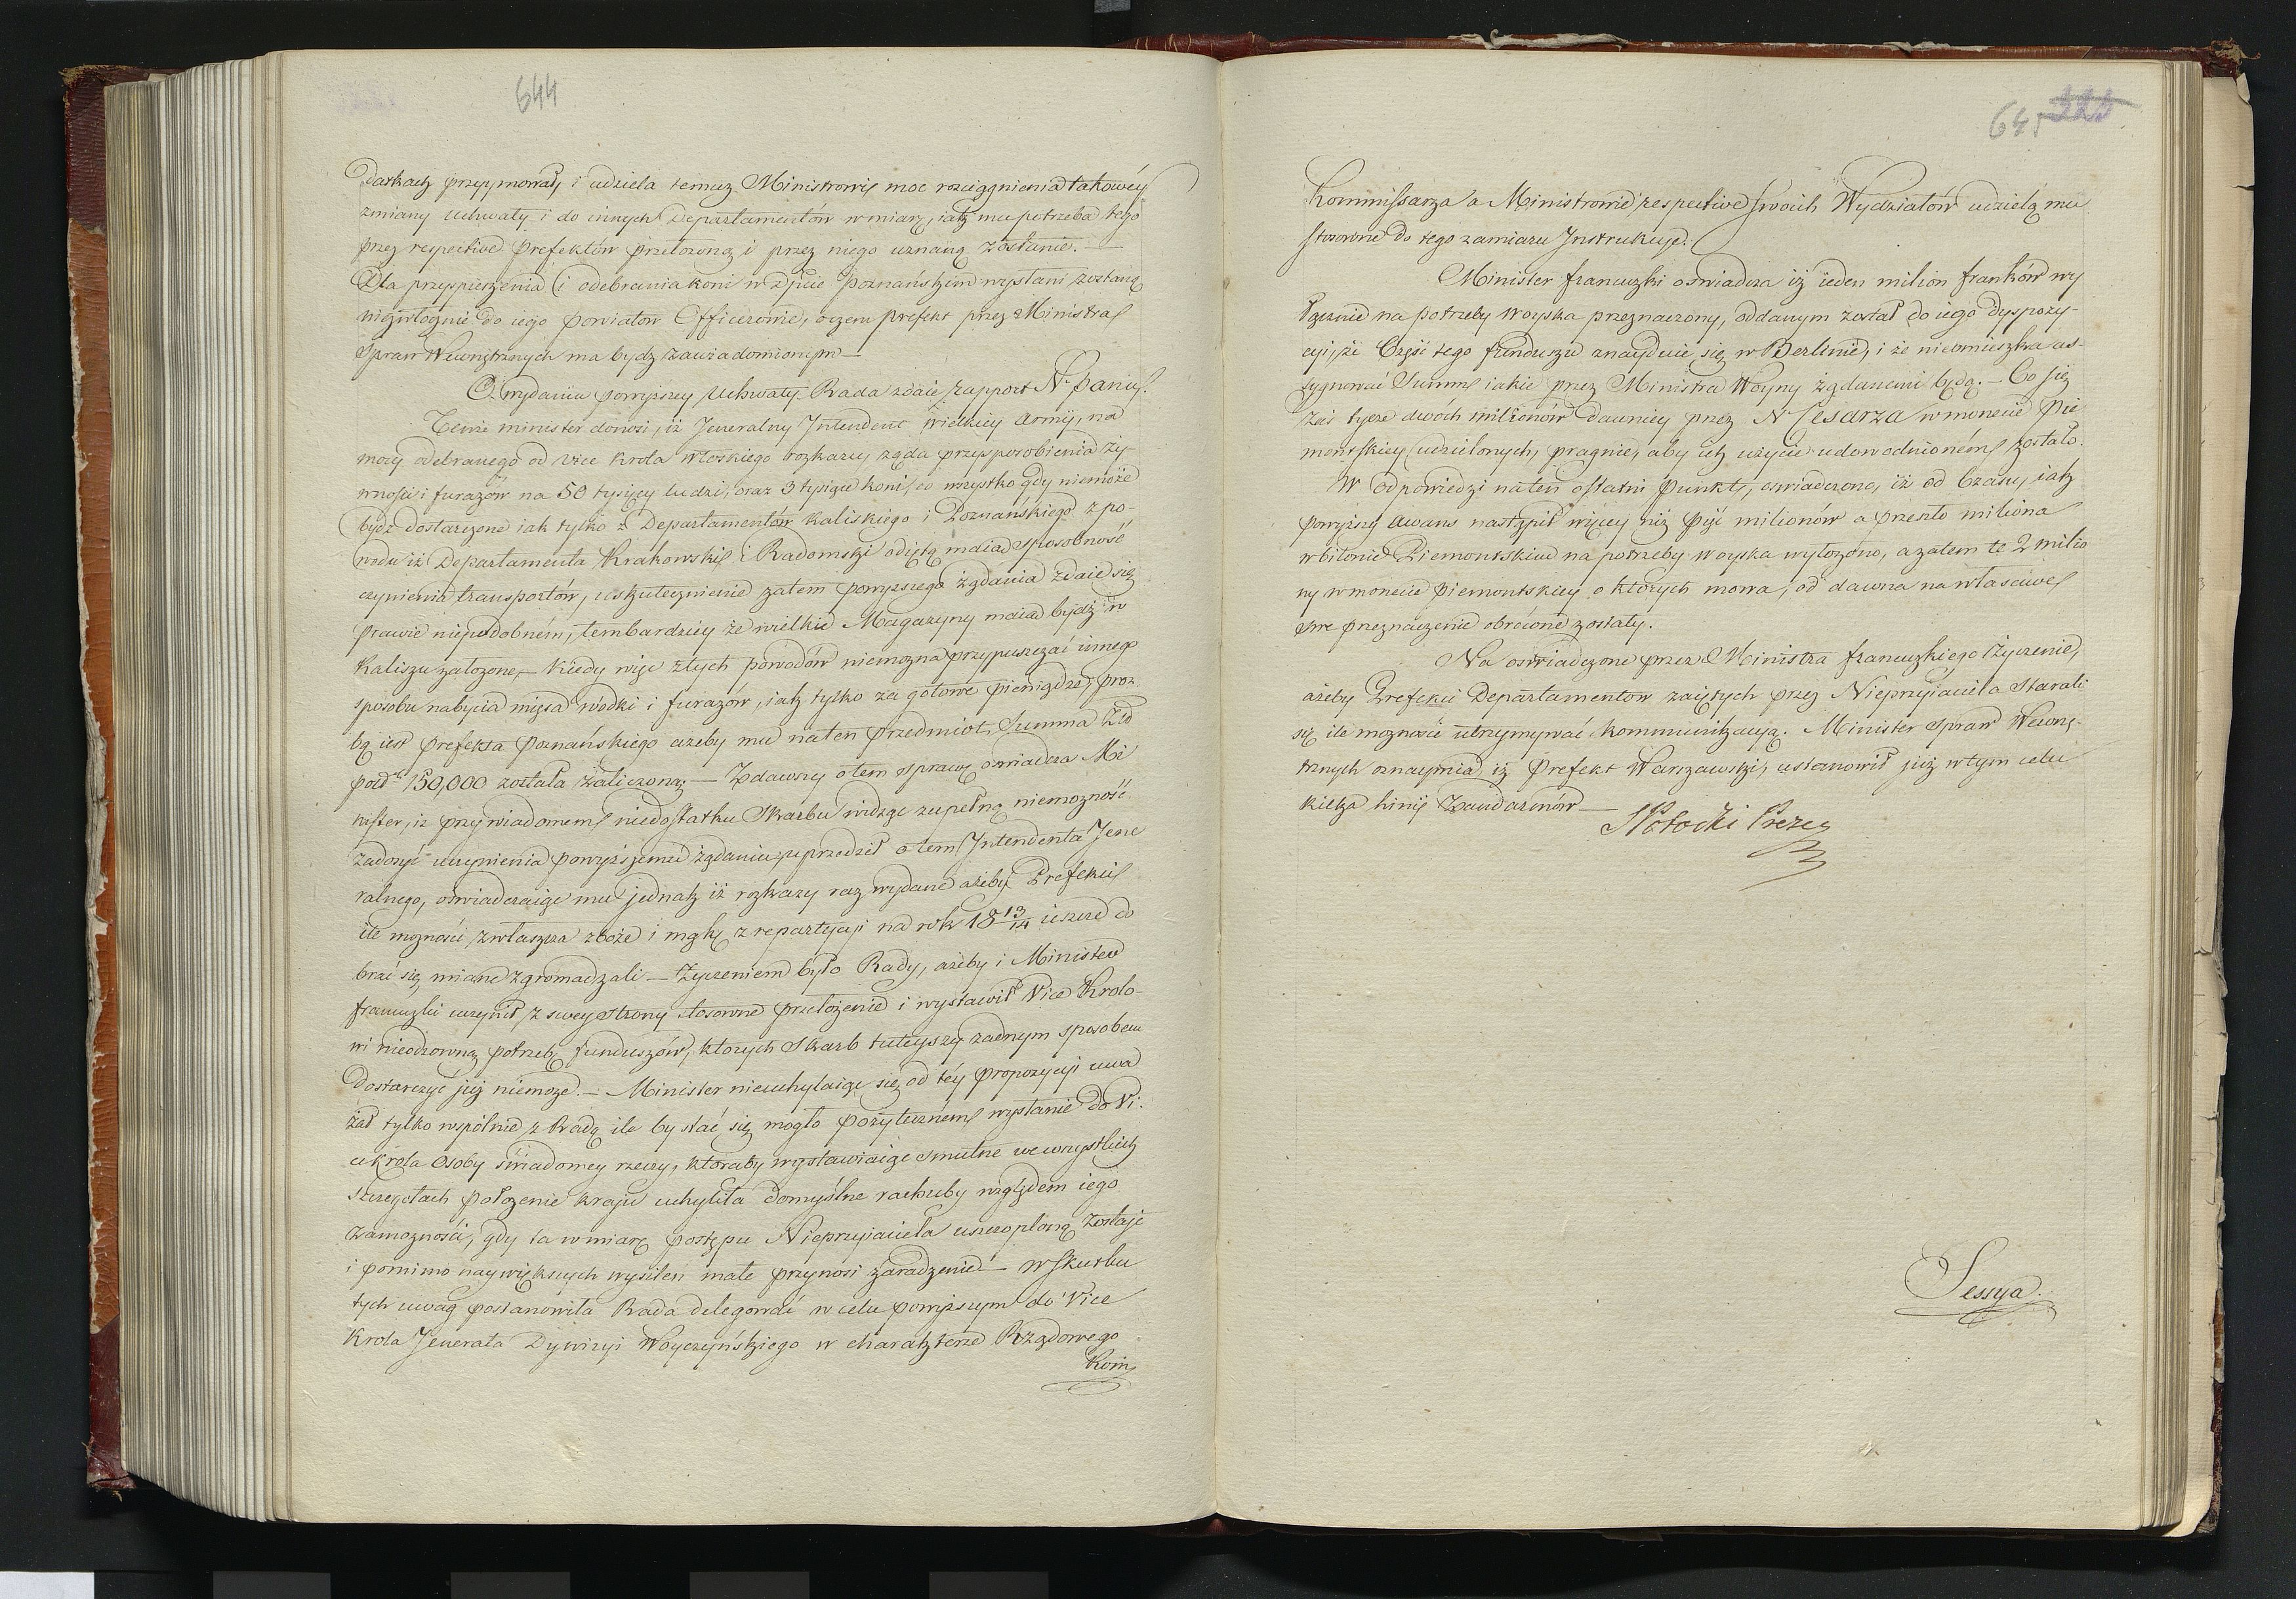 644
datkach przyymował, i udziela temuż Ministrowi moc rozciągnienia takowey
zmiany uchwały i do innych Departamentów w miarę, iak mu potrzeba tego
przez respective Prefektów przełożoną i przez niego uznaną zostanie. —
Dla przyspieszenia i odebrania koni w Dpcie Poznańskim wysłani zostaną
niezwłocznie do iego powiatów Officerowie, o czem Prefekt przez Ministra
Spraw Wewnętrznych ma bydź zawiadomionym —
O wydaniu powyższey Uchwały Rada zdaie rapport N. Panu.
Tenże minister donosi, iż Jeneralny Intendent wielkiey Armij, na
mocy odebranego od Vice Krola Włoskiego rozkazu, żąda przysposobienia ży-
wności i furażów na 50 tysięcy ludzi, oraz 3 tysiące koni, co wszystko gdy niemoże
bydź dostarczone iak tylko z Departamentów Kaliskiego i Poznańskiego z po-
wodu iż Departamenta Krakowski i Radomski odiętą maią sposobność
czynienia transportów, uskutecznienie zatem powyższego żądania zdaie się
prawie niepodobném, tembardziey że wielkie Magazyny maią bydź w
Kaliszu założone, — Kiedy więc z tych powodów niemożna przypuszczać innego
sposobu nabycia mięsa wódki i furażów, iak tylko za gotowe pieniądze, proź
bą iest Prefekta Poznańskiego ażeby mu na ten przedmiot Summa Złd
pols. 150,000 została zaliczoną; — Zdawszy o tem sprawę oswiadcza Mi
nister, iż przy wiadomem niedostatku Skarbu widząc zupełną niemożność
zadosyć uczynienia powyższemu żądaniu, uprzedził o tem Intendenta Jene
ralnego, oswiadczaiąc mu jednak iż rozkazy raz wydane ażeby Prefekci
ile możności, zwłaszcza zboże i mąkę z repartycyi na rok 18 13/14 ieszcze do
brać się miane zgromadzali — Życzeniem było Rady, ażeby i Minister
francuzki uczynił z swey strony stosowne przełożenie i wystawił Vice Krolo-
wi nieodzowną potrzebę funduszów, ktorych Skarb tuteyszy żadnym sposobem
dostarczyć już niemoże. — Minister nieuchylaiąc się od tey propozycyi uwa
żał tylko wspólnie z Radą ile by stać się mogło pożytecznem wysłanie do Vi-
ce Króla Osoby świadomey rzeczy, ktoraby wystawiaiąc smutne we wszystkich
szczegołach położenie kraju uchyliła domyślne rachuby względem iego
zamożności, gdy ta w miarę postępu Nieprzyiaciela uszczuploną zostaje
i pomimo naywiększych wysileń małe przynosi zaradzenie — W skutku
tych uwag postanowiła Rada delegować w celu powyższym do Vice
Krola Jenerała Dywizyi Woyczyńskiego w charakterze Rządowego
Kom
645 323
Kommissarza a Ministrowie respective swoich Wydziałów udzielą mu
stosowne do tego zamiaru Instrukcye.
Minister francuzki oswiadcza iż ieden milion franków wy
łącznie na potrzeby woyska przeznaczony, oddanym został do iego dyspozy-
cyi, że Część tego funduszu znayduie się w Berlinie, i że nieomieszka as-
sygnować Summ iakie przez Ministra Woyny żądanemi będą. — Co się
zaś tycze dwóch milionów dawniey przez N Cesarza w monecie Pie
montskiey udzielonych, pragnie, aby ich użycie udowodnionem zostało.
W odpowiedzi na ten ostatni punkt, oswiadczono, iż od Czasu, iak
powyższy Awans nastąpił więcey niż pięć milionów a przeszło miliona
w bilonie Piemontskim na potrzeby woyska wyłożono, a zatem te 2 milio
ny w monecie piemontskiey o ktorych mowa, od dawna na własciwe
swe przeznaczenie obrócone zostały.
Na oswiadczone przez Ministra francuzkiego życzenie,
ażeby Prefekci Departamentow zaiętych przez Nieprzyiaciela starali
się ile możności utrzymywać kommunikacyą. Minister Spraw Wewnę-
trznych oznaymia, iż Prefekt Warszawski, ustanowił już w tym celu
kilka linij Żandarmów —
S Potocki Prezes
Sessya.